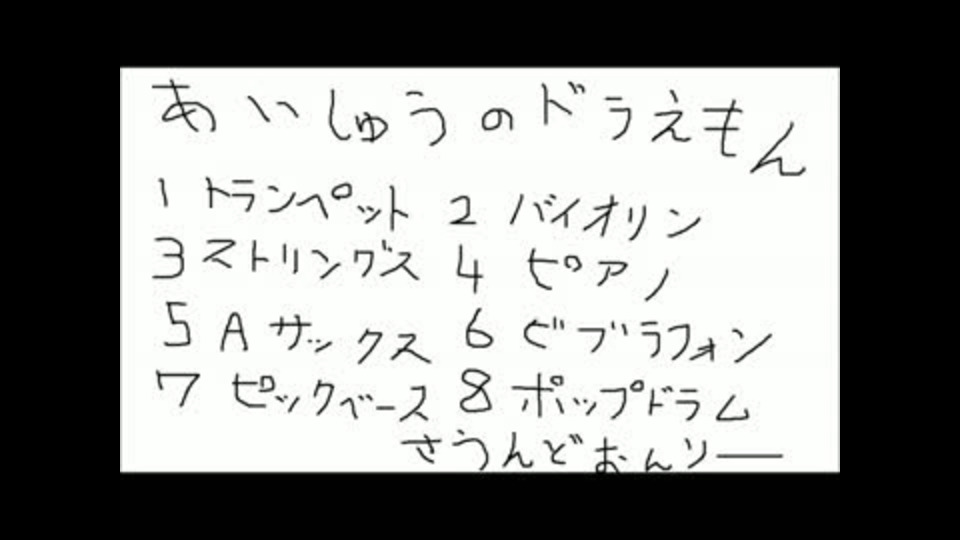 あいしゅうのドラえもん
1 トランペット 2 バイオリン
3 ストリングス 4 ピアノ
5 Aサックス 6 ビブラフォン
7 ピックベース 8 ポップドラム
さうんどおんりー